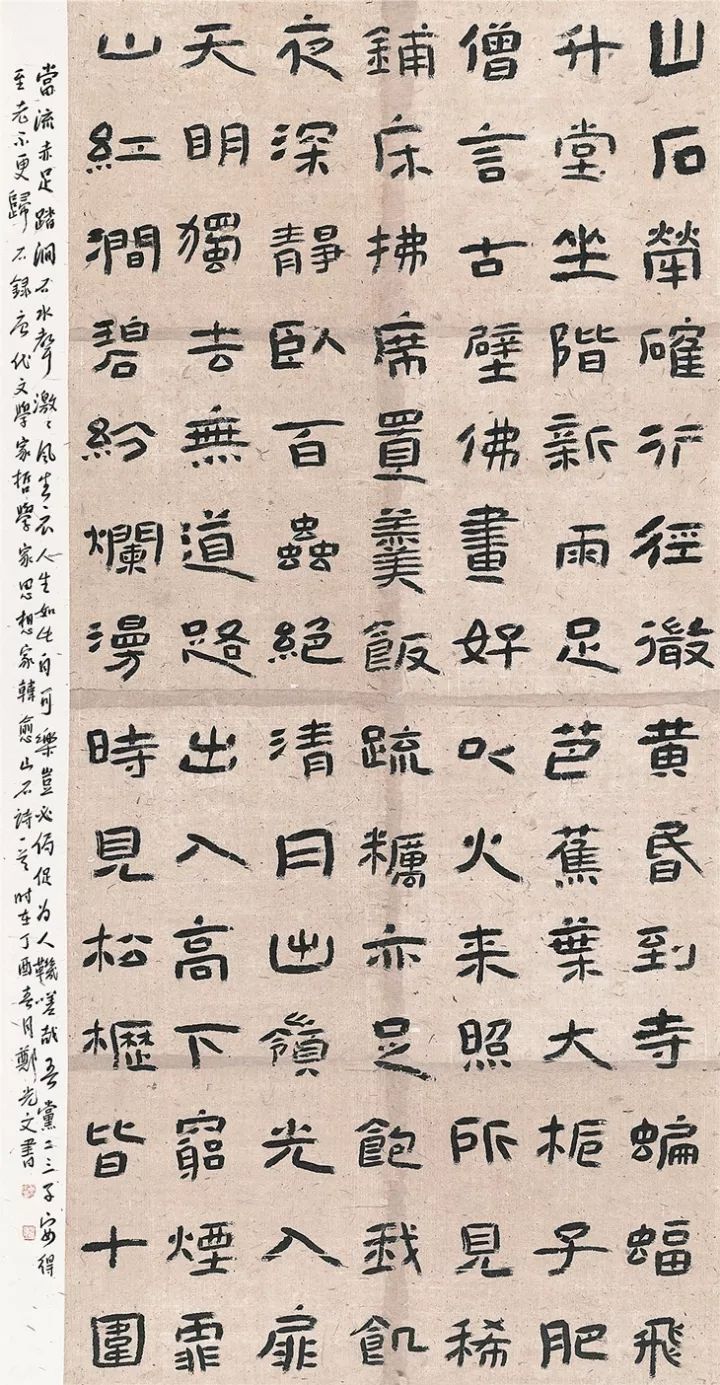 山石犖確行徑微黃昏到寺蝙蝠飛
升堂坐階新雨足芭蕉葉大梔子肥
僧言古壁佛畫好以火来照所見稀
鋪床拂席置羹飯疏糲亦足飽我飢
夜深靜臥百蟲絕清月出嶺光入扉
天明獨去無道路出入高下窮煙霏
山紅澗碧紛爛漫時見松櫪皆十圍
當流赤足踏澗石水聲激〻風生衣人生如此自可樂豈必侷促為人鞿嗟哉吾黨二三子安得
至老不更歸 右錄唐代文學家哲學家思想家韓愈山石詩一首时在丁酉春月鄭光文書